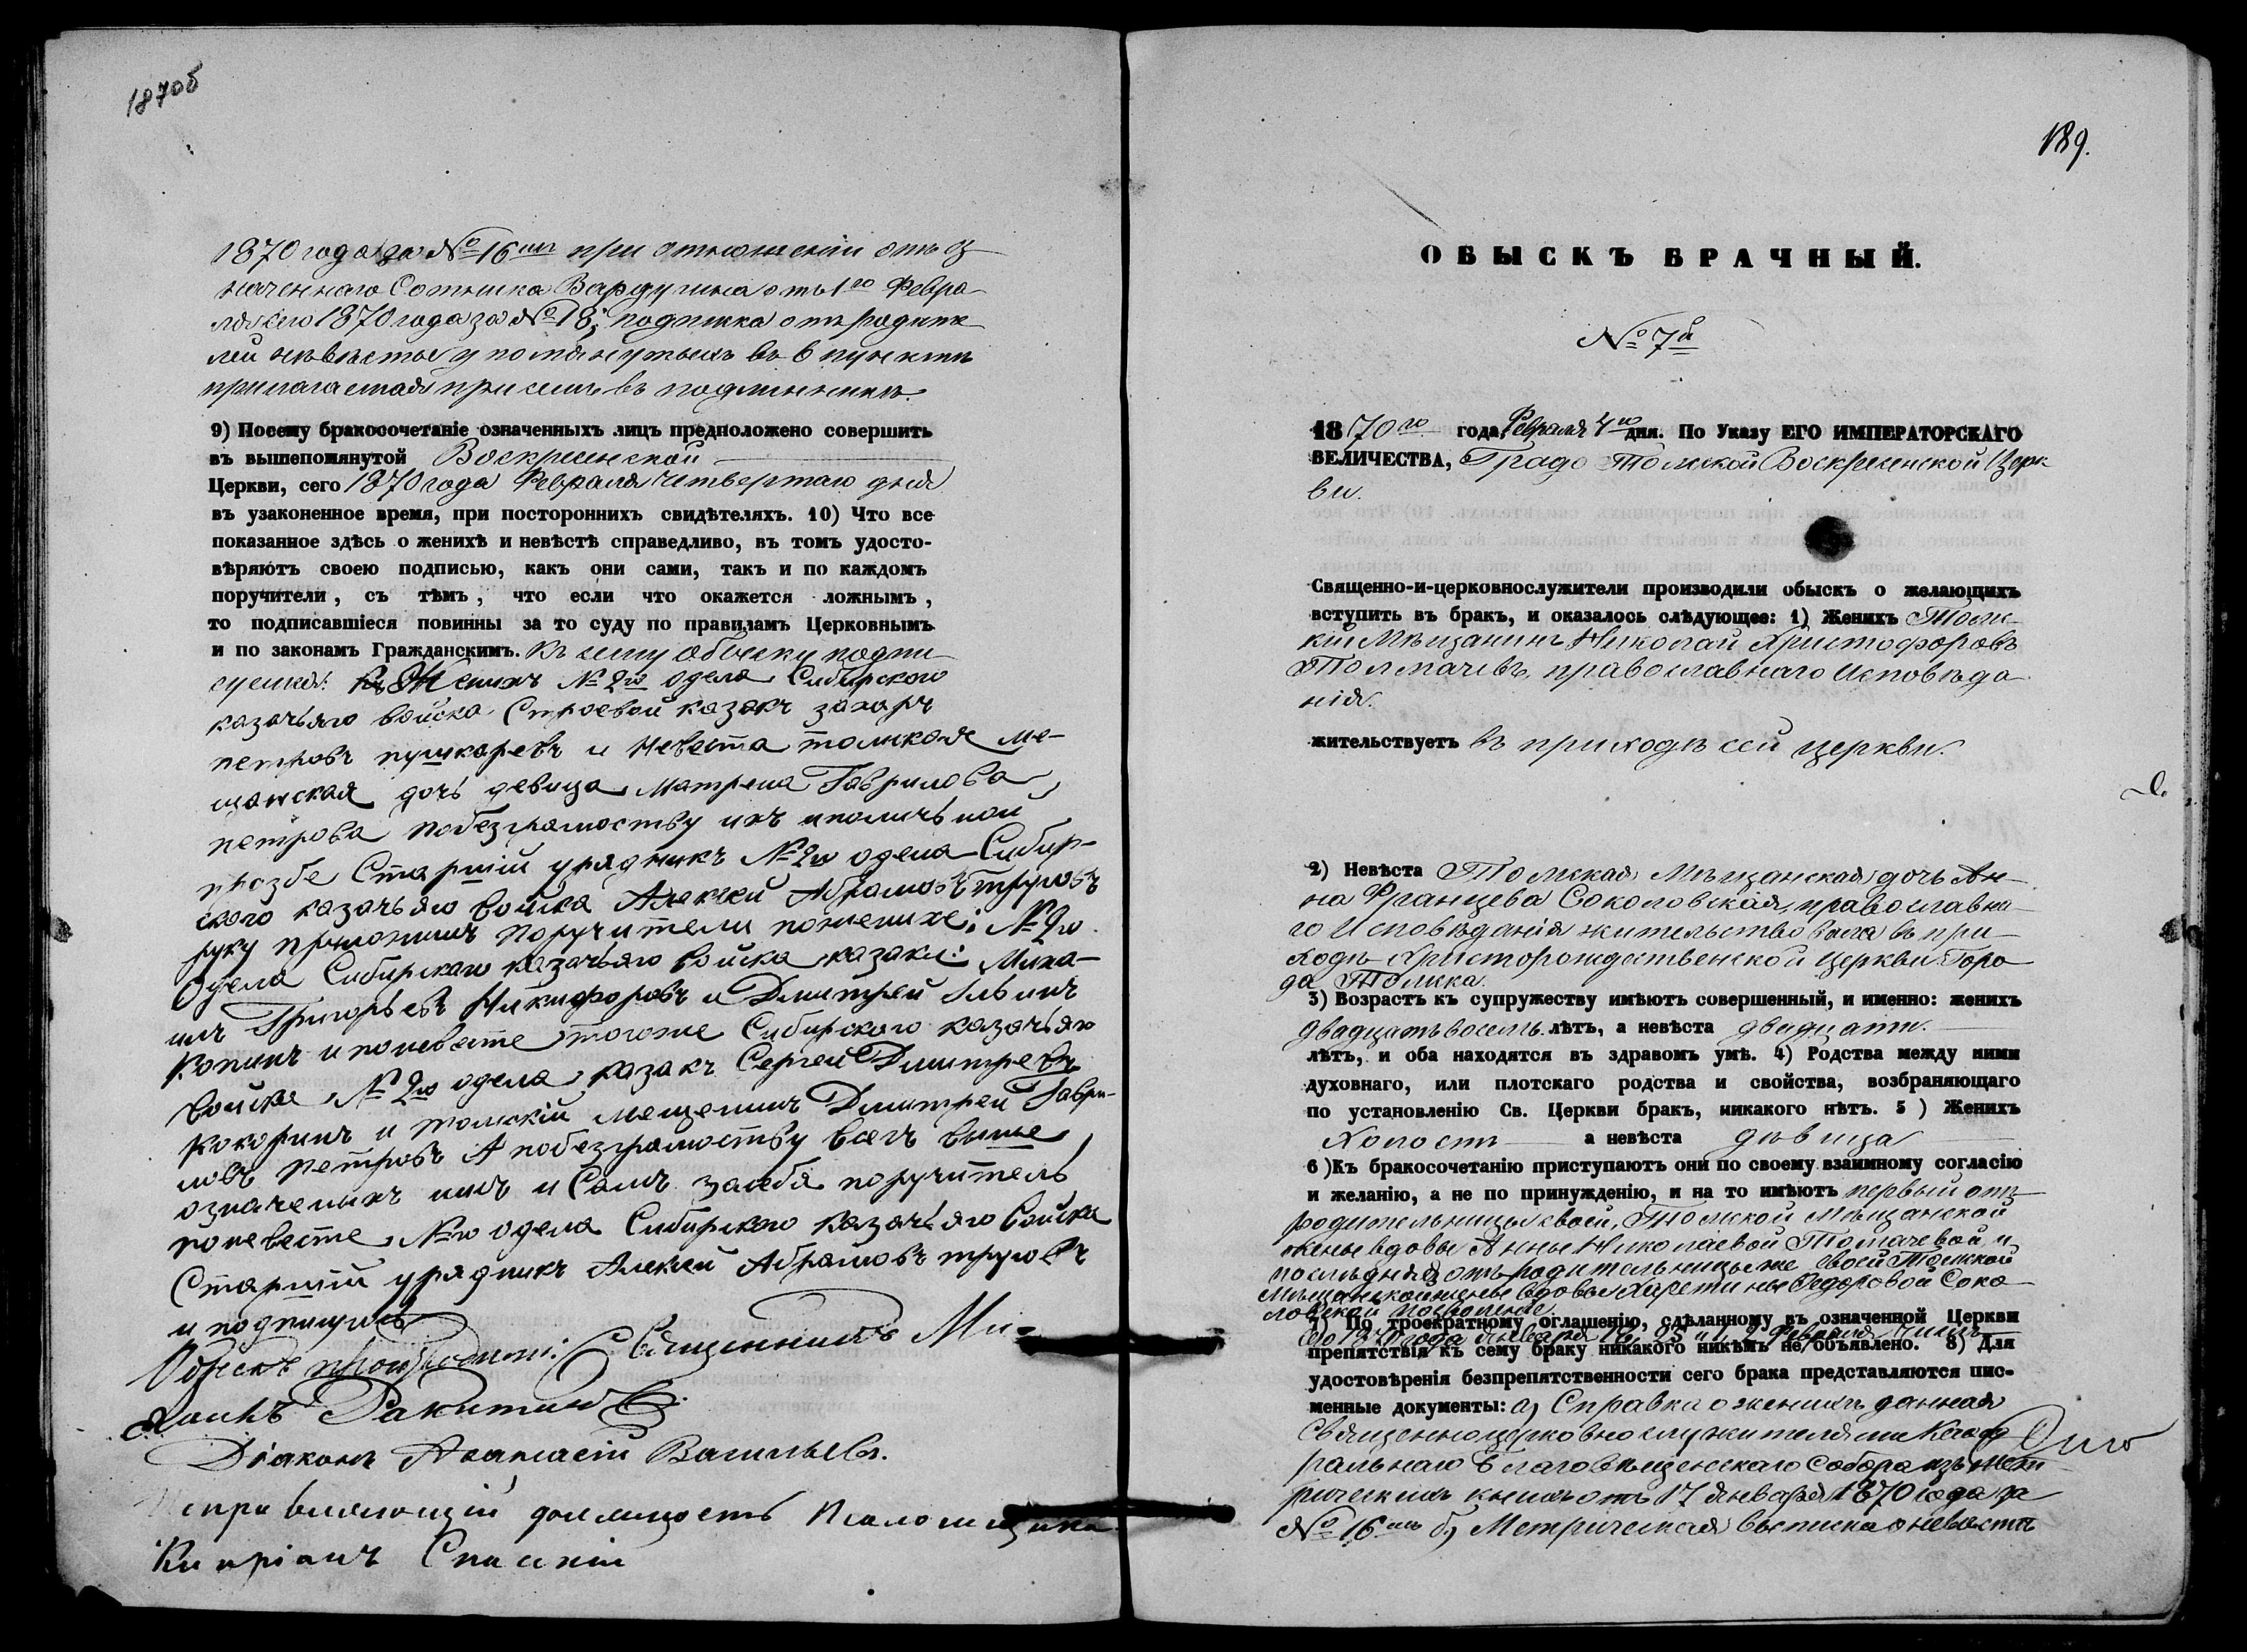 1870об
1870 года за № 16мъ при отношеніи отъ оз
наченнаго Сотника Вардугина отъ 1го Февра
ля сего 1870 года за № 18; подписка отъ родите
лей невѣсты упомянутыхъ въ 6 пунктѣ
прилагаемая при семъ въ подлинникѣ.
9) Посему бракосочетаніе означенныхъ лицъ предположено совершить
въ вышепомянутой Воскресенской
Церкви, сего 1870 года Февраля четвертаго дня
въ узаконенное время, при постороннихъ свидѣтеляхъ. 10) Что все
показанное здѣсь о женихѣ и невѣстѣ справедливо, въ томъ удосто-
вѣряютъ своею подписью, какъ они сами, такъ и по каждомъ
поручители, съ тѣмъ, что если что окажется ложнымъ,
то подписавшіеся повинны за то суду по правиламъ Церковнымъ
и по законамъ Гражданскимъ. Къ сему обыску подпи
суемся: Женихъ № 2го одела Сибирского
казачьяго войска Строевой казакъ захаръ
петровъ пушкаревъ и Невеста томская ме-
щанская дочь девица Матрена Гаврилова
петрова побезграмоству ихъ иполичьной
прозбе Старшій урядникъ № 2го одела Сибир-
ского казачьяго войска Алексей Абрамовъ труловъ
руку приложилъ Поручители пожениxе: № 2го
Одела Сибирскаго казачьяго войска казаки: Миха-
илъ Григорьевъ Никифоровъ и Дмитрей Ильинъ
Копинъ и поневесте тогоже Сибирского казачьяго
войска № 2го одела казакъ Сергей Дмитревъ
Кокоринъ и томскій мещенинъ Дмитрей Гаври-
ловъ Петровъ А побезграмоству всехъ выше
означеныхъ лицъ и Самъ засебя поручитель
поневесте № го одела Сибирского казачьяго войска
Старшій урядникъ Алексей Абрамовъ труловъ
и подпишусъ
Обыскъ производили: Священникъ Ми-
хаилъ Ракитинъ
Діаконъ Аѳанасій Васильевъ.
Исправляющій должность Псаломщика
Кипріанъ Спасскій
189.
ОБЫСКЪ БРАЧНЫЙ.
№ 7й
1870го года, Февраля 4го дня. По Указу ЕГО ИМПЕРАТОРСКАГО
ВЕЛИЧЕСТВА, Градо Томской Воскресенской Церк
ви.
Священно-и-церковнослужители производили обыскъ о желающихъ
вступить въ бракъ, и оказалось слѣдующее: 1) Женихъ Томс-
кій Мѣщанинъ Николай Христофоровъ
Толмачевъ, православнаго Исповѣда
нія.
жительствуетъ въ приходѣ сей церкви.
2) Невѣста Томская Мѣщанская дочь Ан-
на Францева Соколовская, православна
го Исповѣданія жительствовала въ при
ходѣ Христорождественской церкви Горо
да Томска.
3) Возрастъ къ супружеству имѣютъ совершенный, и именно: женихъ
двадцать восемь лѣтъ, а невѣста двадцати.
лѣтъ, и оба находятся въ здравомъ умѣ. 4) Родства между ними
духовнаго, или плотскаго родства и свойства, возбраняющаго
по установленію Св. Церкви бракъ, никакого нѣтъ. 5) Женихъ
Холостъ а невѣста дѣвица
6) Къ бракосочетанію приступаютъ они по своему взаимному согласію
и желанію, а не по принужденію, и на то имѣютъ первый отъ
родительницы своей, Томской Мѣщанской
жены вдовы Анны Николаевой Толмачевой, и
послѣдняя отъ родительницы же своей Томской
Мѣщанской жены вдовы Харетины Федоровой Соко
ловской позволеніе.
7) По троекратному оглашенію, сдѣланному въ означенной Церкви
сего 1870 года Января 18, 25 и 1, 2 Февраля чиселъ
препятствія къ сему браку никакого никѣмъ не объявлено. 8) Для
удостовѣренія безпрепятственности сего брака представляются пис-
менные документы: а) Справка о женихѣ данная
Священноцерковнослужителями Каѳед
ральнаго Благовѣщенскаго Собора изъ мет
рическихъ книгъ отъ 17 января 1870 года за
№ 16мъ б) Метрическая выписка о невѣстѣ